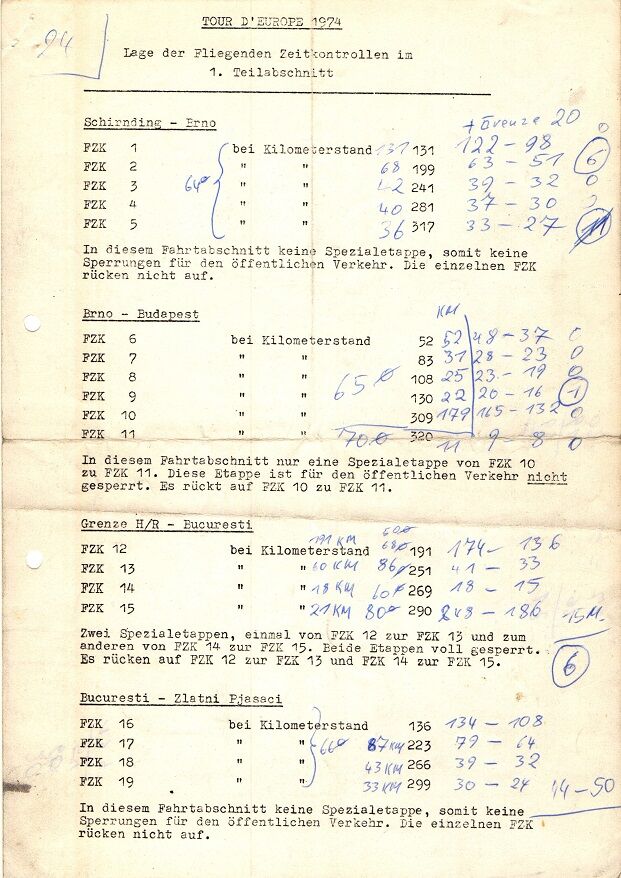 94
TOUR D'EUROPE 1974
Lage der Fliegenden Zeitkontrollen im
1. Teilabschnitt
Schirnding - Brno
+ Grenze 20
FZK 1 bei Kilometerstand 131 131 122 - 98 0
FZK 2 " " 68 199 63 - 51 6
FZK 3 64ø " " 42 241 39 - 32 0
FZK 4 " " 40 281 37 - 30
FZK 5 " " 36 317 33 - 27
In diesem Fahrtabschnitt keine Spezialetappe, somit keine
Sperrungen für den öffentlichen Verkehr. Die einzelnen FZK
rücken nicht auf.
Brno - Budapest
KM
FZK 6 bei Kilometerstand 52 52 48 - 37 0
FZK 7 " " 83 31 28 - 23 0
FZK 8 " " 65ø 108 25 23 - 19 0
FZK 9 " " 130 22 20 - 16 1
FZK 10 " " 309 179 165 - 132 0
FZK 11 70ø 320 11 9 - 8 0
In diesem Fahrtabschnitt nur eine Spezialetappe von FZK 10
zu FZK 11. Diese Etappe ist für den öffentlichen Verkehr nicht
gesperrt. Es rückt auf FZK 10 zu FZK 11.
Grenze H/R - Bucuresti
FZK 12 bei Kilometerstand 191 KM 68ø 191 174 - 136
FZK 13 " " 60 KM 86ø 251 41 - 33
FZK 14 " " 18 KM 60ø 269 18 - 15
FZK 15 " " 21 KM 80ø 290 - 186 15 M.
Zwei Spezialetappen, einmal von FZK 12 zur FZK 13 und zum
anderen von FZK 14 zur FZK 15. Beide Etappen voll gesperrt.
Es rücken auf FZK 12 zur FZK 13 und FZK 14 zur FZK 15.
6
Bucuresti - Zlatni Pjasaci
FZK 16 bei Kilometerstand 136 134 - 108
FZK 17 " " 66ø 87 KM 223 79 - 64
FZK 18 " " 43 KM 266 39 - 32
FZK 19 " " 33 KM 299 30 - 24 14-50
In diesem Fahrtabschnitt keine Spezialetappe, somit keine
Sperrungen für den öffentlichen Verkehr. Die einzelnen FZK
rücken nicht auf.